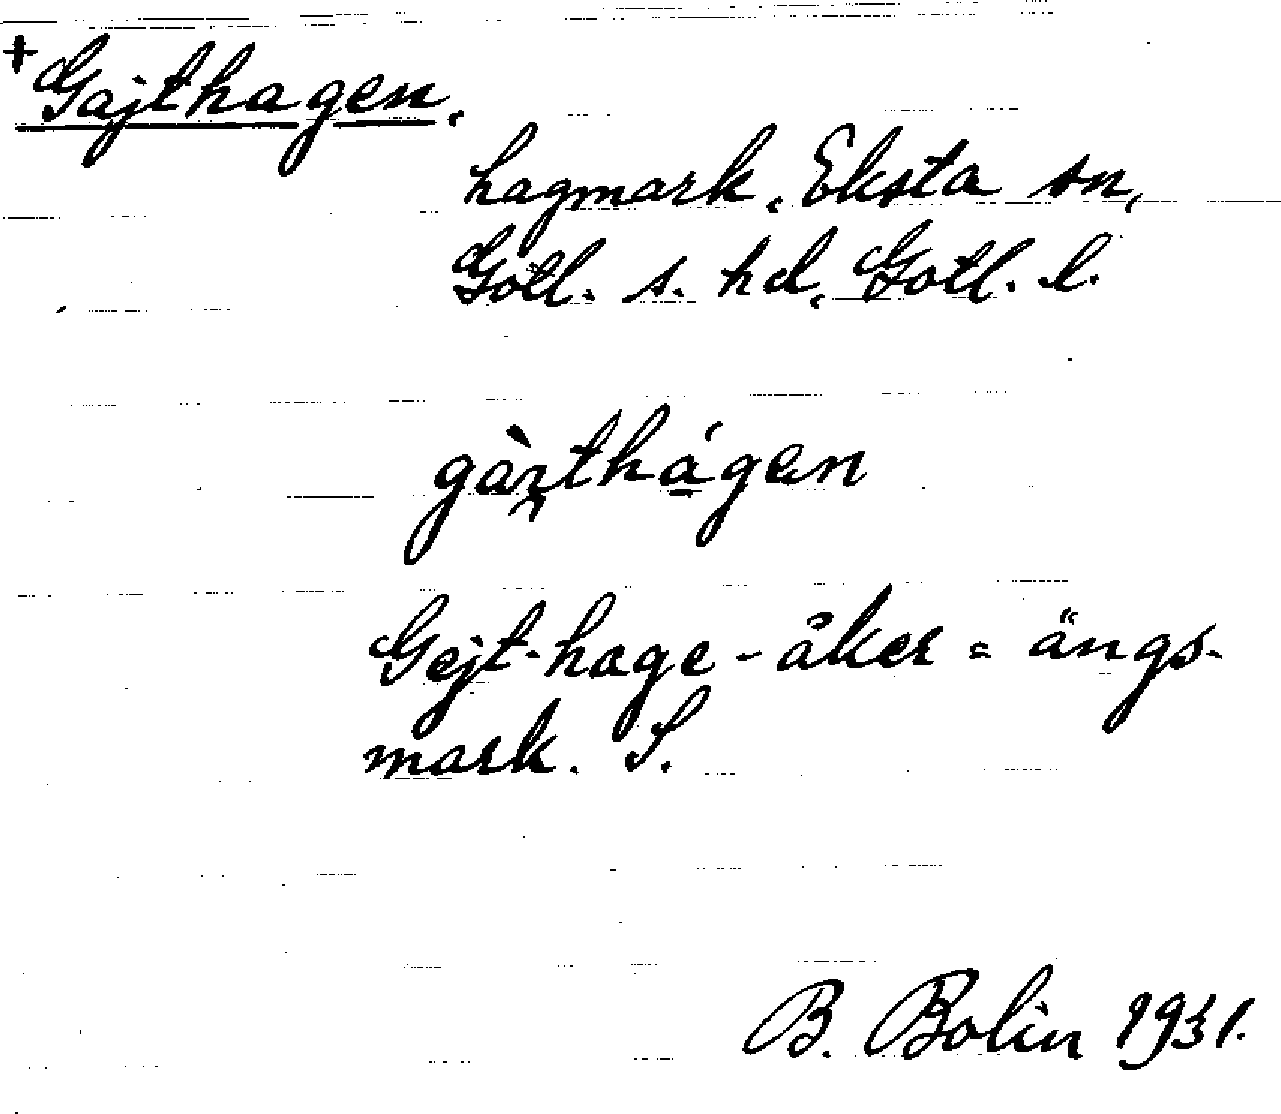 + Gajthagen.
hagmark, Eksta sn,
Gotl. s. hd, Gotl. l.
gàı̯thá̠gen
Gejt-hage-åker = ängs-
mark. S.
B. Bolin 1931.